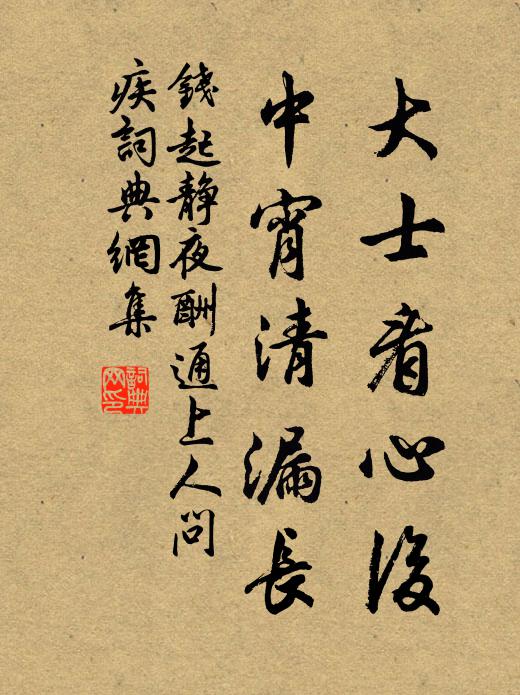 大士看心後
中宵清漏長
錢起静夜酬通上人問
疾詞典網集
詞典
网印